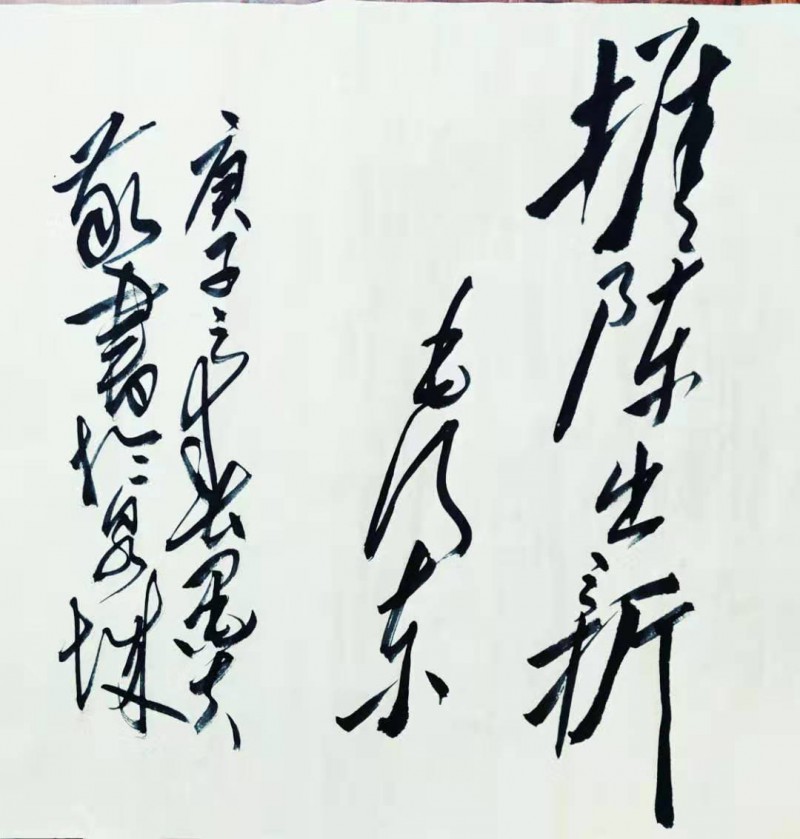 推陈出新
毛泽东
庚子之春
敬书于泉城